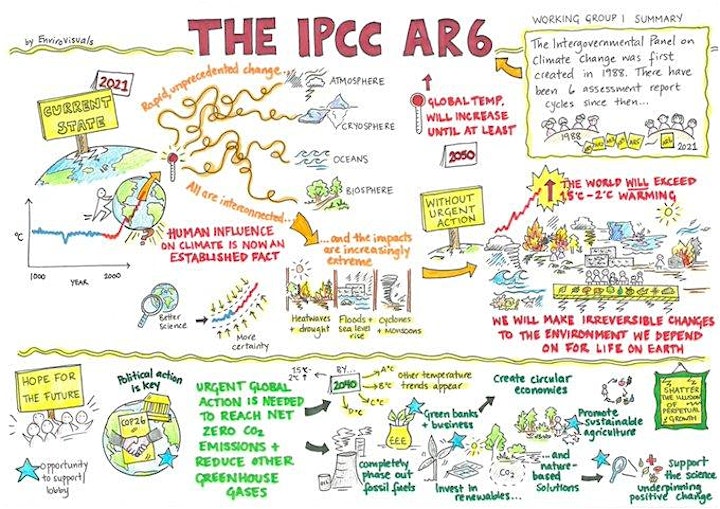 by Envirovisuals
THE IPCC AR6
WORKING GROUP 1 SUMMARY
The Intergovernmental Panel on
Climate Change was first
created in 1988. There have
been 6 assessment report
cycles since then...
1988
AR5
AR6
2021
2021
CURRENT
STATE
Rapid, unprecedented change...
ATMOSPHERE
CRYOSPHERE
OCEANS
BIOSPHERE
All are interconnected...
GLOBAL TEMP.
WILL INCREASE
UNTIL AT LEAST
2050
°C
1000
2000
YEAR
HUMAN INFLUENCE
ON CLIMATE IS NOW AN
ESTABLISHED FACT
Better
Science
More
certainty
...and the impacts
are increasingly
extreme
Heatwaves
+ drought
Floods +
sea level
rise
cyclones
+ monsoons
WITHOUT
URGENT
ACTION
THE WORLD WILL EXCEED
1.5°C-2°C WARMING
WE WILL MAKE IRREVERSIBLE CHANGES
TO THE ENVIRONMENT WE DEPEND
ON FOR LIFE ON EARTH
HOPE FOR
THE FUTURE
opportunity
to support/
lobby
Political action
is key
COP26
URGENT GLOBAL
ACTION IS NEEDED
TO REACH NET
ZERO CO2
EMISSIONS +
REDUCE OTHER
GREENHOUSE
GASES
BY...
2040
A°C
B°C
C°C
D°C
Other temperature
trends appear
£££
Green banks
+ business
completely
phase out
fossil fuels
Invest in
renewables...
CO2
...and
nature-
based
Solutions
Create circular
economies
Promote
sustainable
agriculture
SHATTER
THE ILLUSION
OF
PERPETUAL
GROWTH
Support
the science
underpinning
positive change